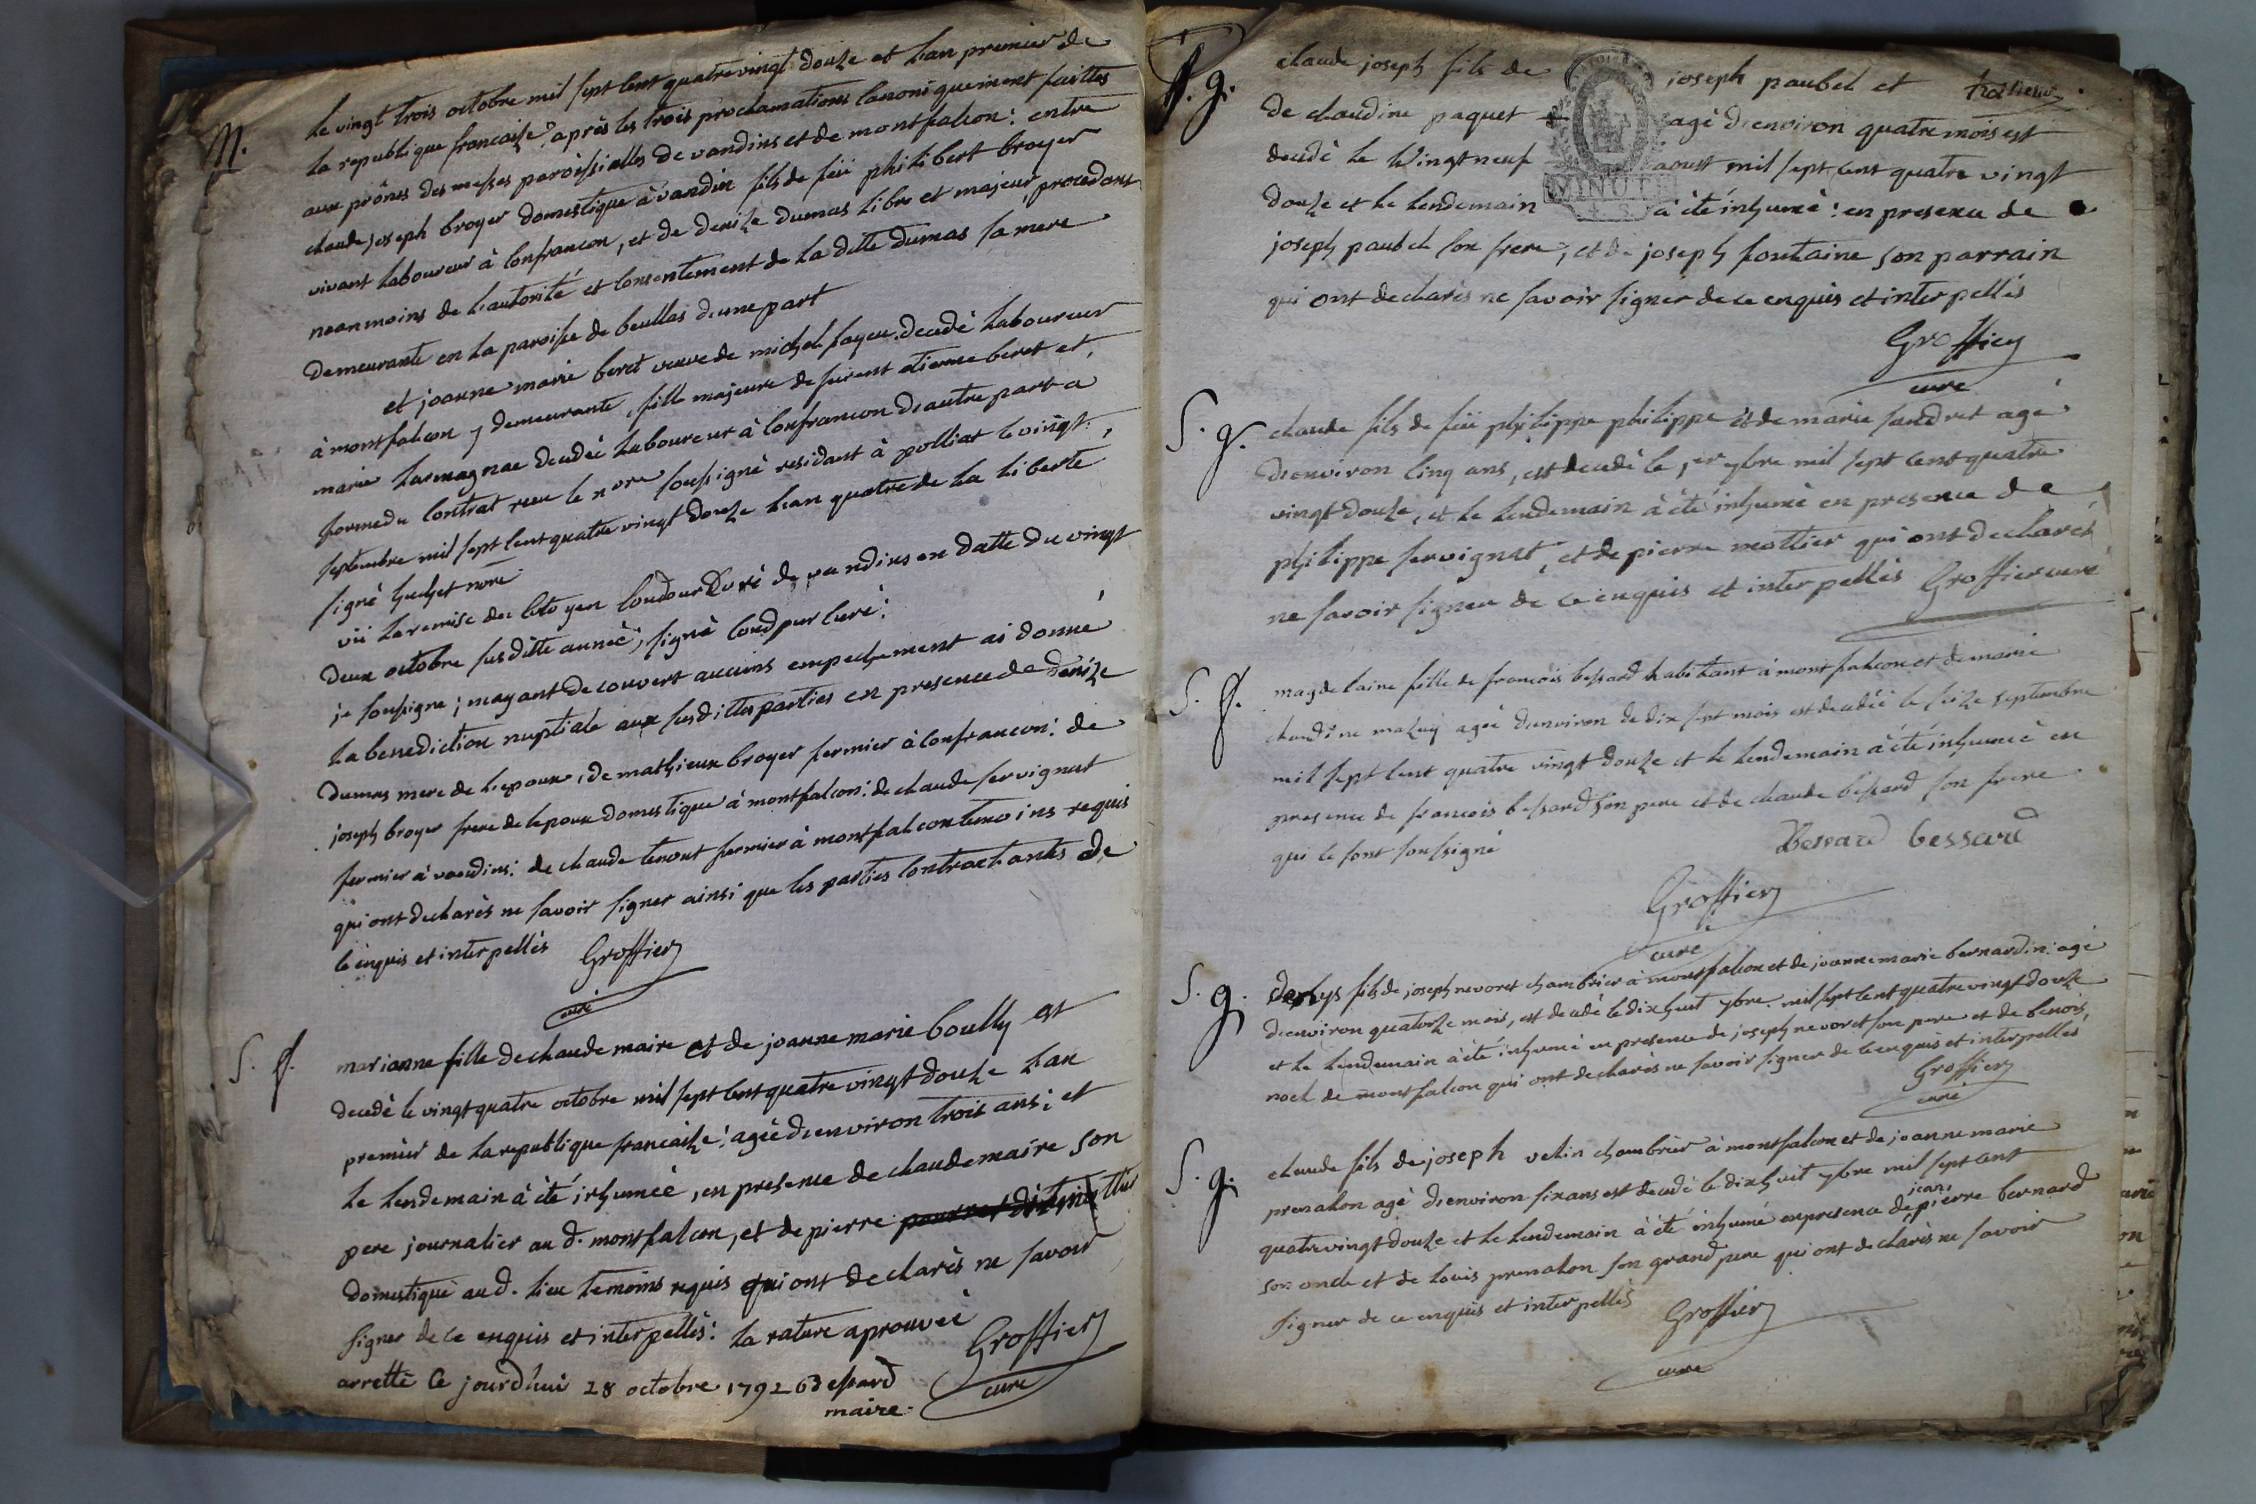 M.
le vingt trois octobre mil sept cent quatrevingt douze et l'an premier de
la republique francaise, après les trois proclamations canoniquement faittes
aux prônes des messes paroissialles de vandins et de montfalcon: entre
claude joseph broyer domestique à vandin fils de feü philibert broyer
vivant laboureur à confrancon, et de denize dumas libre et majeur, procedant
neanmoins de l'autorité et consentement de la ditte dumas sa mere
demeurante en la paroisse de d'une part
et joanne marie beret veuve de michel decedé laboureur
à montfalcon y demeurante, fille majeure de etienne beret et
marie decedée laboureur à confrancon d'autre part a
forme du contrat recu le nore soussigné residant à polliat le vingt
septembre mil sept cent quatre vingt douze l'an quatre de la liberté
signé nore
vü la remise du citoyen curé de vandins en datte du vingt
deux octobre susditte année; signé curé:
je soussigne; n'ayant decouvert aucuns empechement ai donné
la benediction nuptiale aux susdittes parties en presence de denize
dumas mere de l'epoux, de mathieux broyer fermier à confrancon: de
joseph broyer frere de l'epoux domestique à montfalcon: de claude servignat
fermier à vandins: de claude tenout fermier à montfalcon temoins requis
qui ont declarès ne savoir signer ainsi que les parties contractants de
ce enquis et interpellès Groffier
curé
S. f.
marianne fille de claude maire et de joanne marie boully est
decedé le vingt quatre octobre mil sept cent quatre vingt douze l'an
premier de la republique francaise: agée d'environ trois ans; et
le lendemain à été inhumée, en presence de claude maire son
pere journalier au d. montfalcon, et de pierre
domestique au d. lieu temoins requis qui ont declarès ne savoir
signer de ce enquis et interpellès: la rature aprouvée
Groffier
curé
arretté ce jourd'hui 28 octobre 1792 Bessard
maire
S. g.
claude joseph fils de joseph paubel et
de claudine paquet agé d'environ quatre mois est
decedé le vingt neuf aoust mil sept cent quatre vingt
MINUTE
douze et le lendemain à été inhumé: en presence de
joseph paubel son frere, et de joseph fontaine son parrain
qui ont declarès ne savoir signer de ce enquis et interpellés
Groffier
curé
S. g.
claude fils de feü philippe philippe et de marie agé
d'environ cinq ans, est decedé le 1er 7bre mil sept cent quatre
vingt douze, et le lendemain à été inhumé en presence de
philippe servignat, et de pierre mottier qui ont declarés
ne savoir signer de ce enquis et interpellés Groffier curé
S. f.
magdelaine fille de francois bessard habitant à montfalcon et de marie
claudine mazuy agée d'environ de dix sept mois est decedée le seize septembre
mil sept cent quatre vingt douze et le lendemain à été inhumée en
presence de francois bessard son pere et de claude bessard son frere
qui se sont soussigné
Bessard bessard
Groffier
curé
S. g.
denys fils de joseph nevoret chambrier à montfalcon et de joanne marie bernardin: agé
d'environ quatorze mois, est decedé le dix huit 7bre mil sept cent quatre vingt douze
et le lendemain à été inhumé en presence de joseph nevoret son pere et de benois
noel de montfalcon qui ont declarès ne savoir signer de ce enquis et interpellés
Groffier
curé
S. g.
claude fils de joseph velin chambrier à montfalcon et de joanne marie
premalon agé d'environ six ans est decedé le dix huit 7bre mil sept cent
quatre vingt douze et le lendemain à été inhumé en presence de jean pierre bernard
son oncle et de louis premalon son grand pere qui ont declarès ne savoir
signer de ce enquis et interpellés Groffier
curé